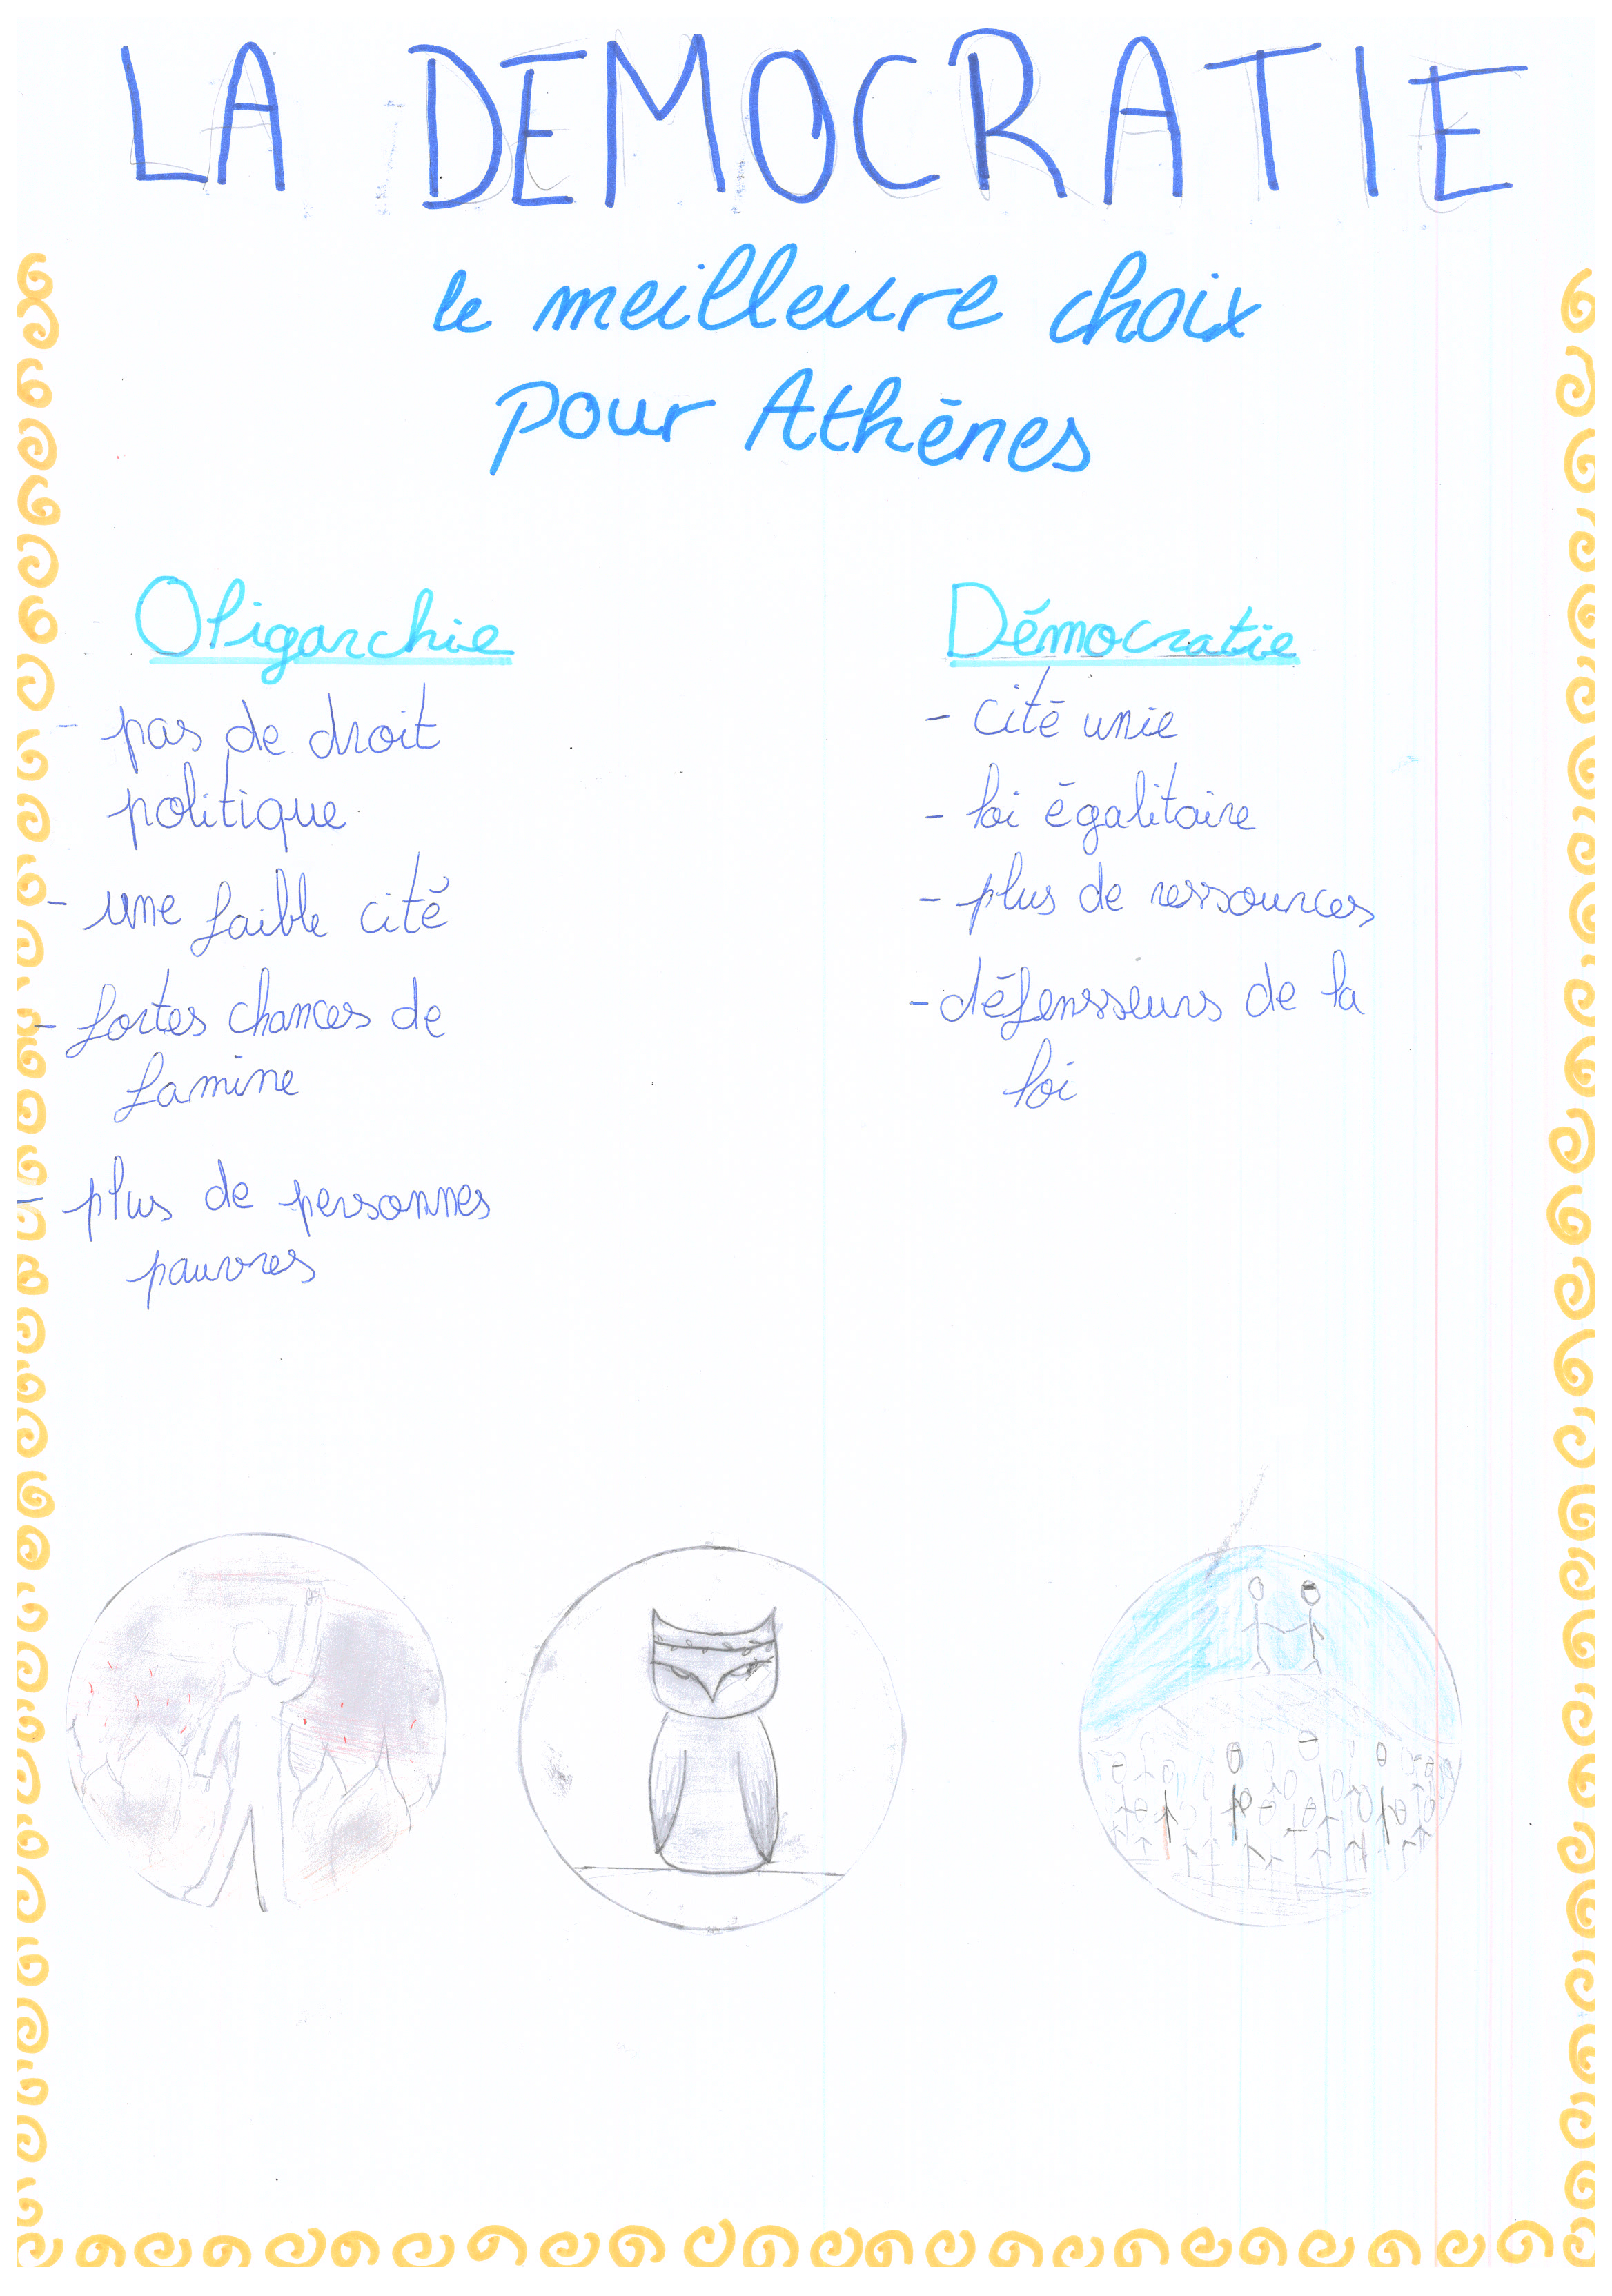 LA DEMOCRATIE
le meilleure choix
pour Athènes
Oligarchie
- pas de droit
politique
- une faible cité
- fortes chances de
famine
- plus de personnes
pauvres
Démocratie
- cité unie
- loi égalitaire
- plus de ressources
- défensseurs de la
loi